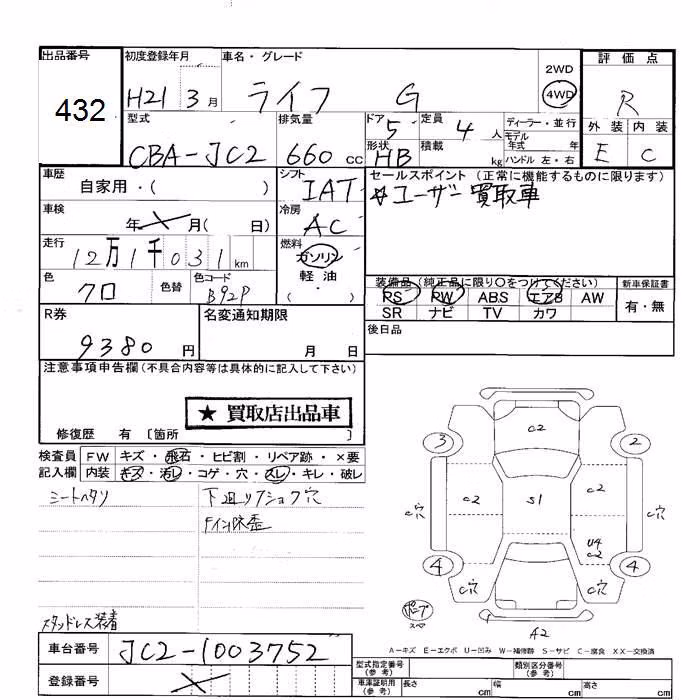 出品番号
432
初度登録年月
H21 3月
車名・グレード
ライフ G
2WD
4WD
評価点
R
外装 内装
E C
型式
CBA-JC2
排気量
660 cc
ドア 5
形状 HB
定員 4 人
積載 kg
ディーラー・並行
モデル
年式 年
ハンドル 左・右
車歴
自家用・( )
シフト
IAT
セールスポイント (正常に機能するものに限ります)
☆ユーザー買取車
車検
年 月( 日)
冷房
AC
走行
12万1千031km
燃料
ガソリン
軽油
・
( )
色
クロ
色替
色コード
B92P
装備品 (純正品に限り○をつけてください)
PS PW ABS エアB AW
SR ナビ TV カワ
新車保証書
有・無
R券
9380 円
名変通知期限
月 日
後日品
注意事項申告欄 (不具合内容等は具体的に記入して下さい)
★ 買取店出品車
修復歴 有 〔箇所 〕
検査員
記入欄
FW キズ・飛石・ヒビ割・リペア跡・×要
内装 キズ・汚レ・コゲ・穴・スレ・キレ・破レ
シートヘタリ
下廻リ
ショック穴
スタッドレス装着
C2
3
2
C2
S1
C2
C穴
C穴
U4
C2
4
4
C穴
C穴
A2
A-キズ E-エクボ U-凹み W-補修跡 S-サビ C-腐食 XX-交換済
車台番号
JC2-1003752
登録番号
型式指定番号
(参考)
類別区分番号
(参考)
車庫証明用
(参考)
長さ cm
幅 cm
高さ cm